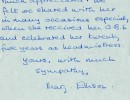 much appreciated. We
felt we shared with her
in many occasions especially
when she received her O.B.E.
and celebrated her twenty
five years as headmistress.
Yours, with much
sympathy,